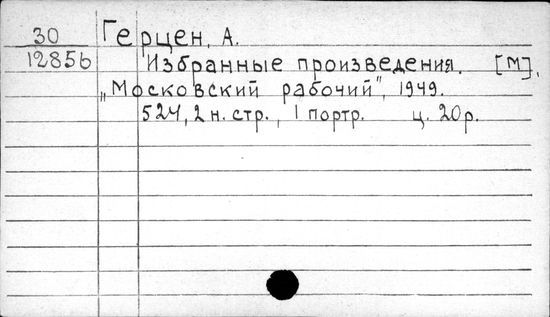 30 Герцен, А.
12856 Избранные произведения. [М],
„Московский рабочий", 1949.
524, 2 н. стр., 1 портр. ц. 20 р.